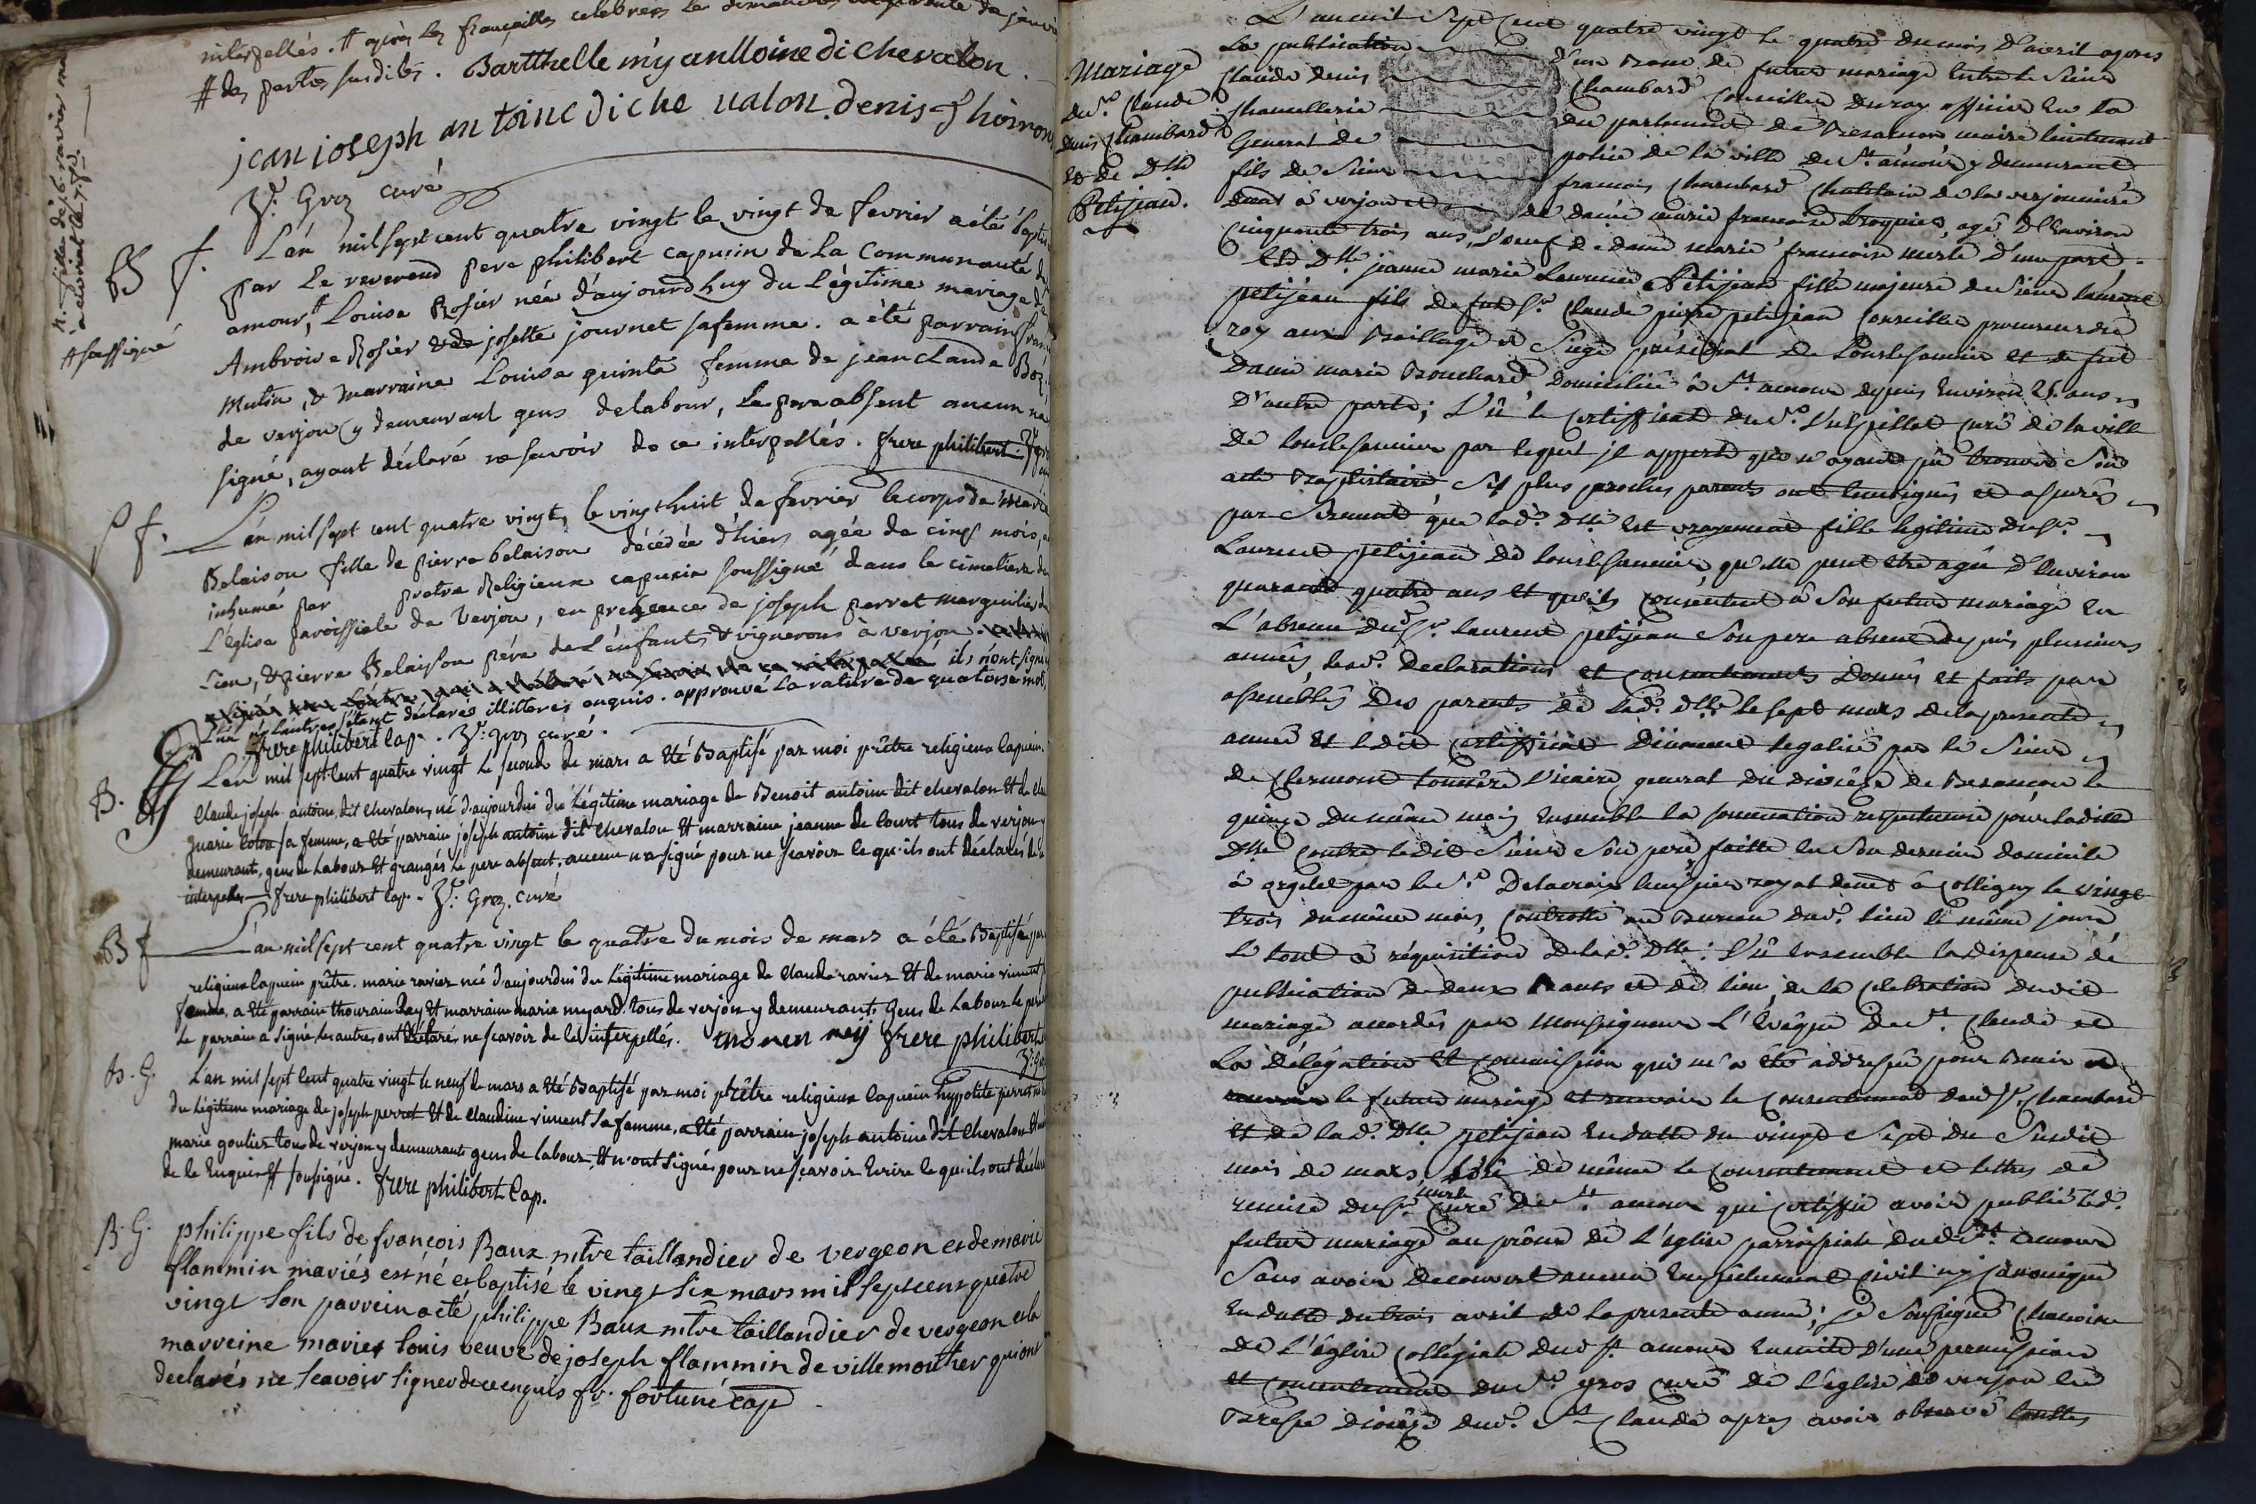 interpellés. # après les fiançailles celebrées le dimanche
# des parties susdites. Bartthelle mӱ anlloine di chevalon.
jean joseph an toine di che ualon. denis thoiron
P. Groz curé
L'an mil sept cent quatre vingt le vingt de fevrier a été baptisé
par le reverend pere philibert capucin de la Communauté de
amour # Louise Rosier née d'aujourd'huy du Légitime mariage d'
Ambroise Rosier et de josette journet sa femme. a été parrain
Mutin, & marraine Louise quinte femme de jean claude Boz
de verjon y demeurant gens de labour, le pere absent aucun n'a
signé, ayant déclaré ne savoir de ce interpellés. frere philibert
# soussigné
L'an mil sept cent quatre vingt, le vingt huit de fevrier le corps de marie
Belaison fille de pierre belaison décédée d'hier agée de cinq mois, a
inhumé par pretre Religieux capucin soussigné dans le cimetiere de
L'église paroissiale de Verjon, en presence de joseph perret marguilier du
Lieu, & pierre Belaison pére de L'enfant & vignerons à verjon.
ils n'ont signé
L'un et L'autre s'étant déclarés illitterés enquis. approuvé la rature de quatorse mots
frere philibert Cap. P. groz curé.
B. L'an mil sept cent quatre vingt le second de mars a été Baptisé par moi prêtre religieux Capucin
Claude joseph antoine dit chevalon, né d'aujourdui du Légitime mariage de Benoit antoine dit chevalon et de
marie Colon sa femme, a été parrain joseph antoine dit chevalon et marraine jeanne de Court tous de verjon y
demeurant, gens de Labour et grangés le pere absent, aucun n'a signé pour ne sçavoir ce qu'ils ont déclarés de
interpellés frere philibert Cap. P. Groz. curé
B f L'an mil sept cent quatre vingt le quatre du mois de mars a été Baptisé par
religieux Capucin prêtre. marie ravier née d'aujourdui du Légitime mariage de Claude ravier et de marie vincent
femme, a été parrain thouvain Ray et marraine marie meyard. tous de verjon y demeurants Gens de Labour le pere
le parrain a signé, les autres ont déclarés ne sçavoir de ce interpellés. frere philibert
B. G. L'an mil sept cent quatre vingt le neuf de mars a été Baptisé par moi prêtre religieux Capucin hyppolite perret
du Légitime mariage de joseph perret et de Claudine vincent sa femme, a été parrain joseph antoine dit chevalon et
marie goutier tous de verjon y demeurants gens de Labour, et n'ont signé pour ne sçavoir Ecrire ce qu'ils ont déclaré
de ce Enquis # soussigné. frere philibert Cap.
B. G. philippe fils de françois Baux mtre taillandier de vergeon et de marie
flammin mariés est né et baptisé le vingt six mars mil sept cent quatre
vingt son parrein a été philippe Baux mtre taillandier de vergeon et la
marreine marie louis veuve de joseph flammin de villemoutier qui ont
declarés ne sçavoir signer de ce enquis fr. fortuné cap
Mariage
du Sr Claude
denis Chambard
et de Dlle
Petijean.
L'an mil sept cent quatre vingt le quatre du mois d'avril apres
La publication d'un banc de futur mariage Entre le Sieur
Claude denis Chambard Conseiller du roy officier En la
Chancellerie du parlement de Besancon maire lieutenant
General de police de la ville de St amour y demeurant
fils de Sieur francois Chambard Chatelain de la verjonniere
demt à verjon et de dame marie francoise Broquier, agé d'Environ
Cinquante trois ans, veuf de dame marie francoise merle d'une part,
Et Dlle jeanne marie Laurence Petijean fille majeure du Sieur laurent
petijean fils de fut Sr Claude pierre petijean Conseiller procureur du
roy aux Baillage et Siege présidial de Lonslesaunier et de fut
Dame marie Bouchard domiciliée à St amour depuis Environ 25. ans
D'autre parte; Vû le Certifficat du Sr Vulpillot curé de la ville
de lonslesaunier par lequel il appert que n'ayant pû trouver Son
acte Baptistaire Ses plus proches parents ont temoignés et assurés
par Serment que lad. Dlle Est vrayement fille legitime du Sr
Laurent petijean de lonslesaunier, qu'elle peut etre agée d'Environ
quarante quatre ans et qu'ils Consentent à Son futur mariage En
L'absence dud. Sr laurent petijean Son pere absent depuis plusieurs
années, lesd. Declarations et Consentements Donnés et faits par
assemblés Des parents de lad. Dlle le sept mars de la presente
année Et ledit Certifficat Düement legalisé par le Sieur
de Clermont tonnère Vicaire general du diocèse de Besancon le
quinze du même mois Ensemble la sommation respectueuse pour ladite
Dlle Contre ledit Sieur Son pere faitte En Son dernier domicile
à orgelet par le Sr Delacroix huissier royal demt à Colligny le vingt
trois du même mois, Controllé au Bureau dud. lieu le même jour
Le tout à réquisition de lad. Dlle: Vû ensemble la dispense de
publication de deux Bancs et de lieu de la Celebration dudit
mariage accordés par Monseigneur L'Evêque de St Claude et
La délégation Et Commission qui m'a été addressée pour Benir et
le futur mariage et recevoir le Consentement dud. Sr Chambard
et de lad. Dlle petijean En datte du vingt Sept du Susdit
mois de mars, de même le Consentement et lettres de
remise du Sr merle Curé de St amour qui Certiffie avoir publié led.
futur mariage au prône de L'eglise parroissiale dudit St amour
Sans avoir Decouvert aucun Empêchement Civil ny Canonique
En datte du trois avril de la presente année; Je Soussigné Chanoine
de L'église Collégiale dud. St amour Ensuite d'une permission
et Consentement du Sr gros Curé de L'église de verjon En
Bresse diocèze dud. St Claude apres avoir observé touttes